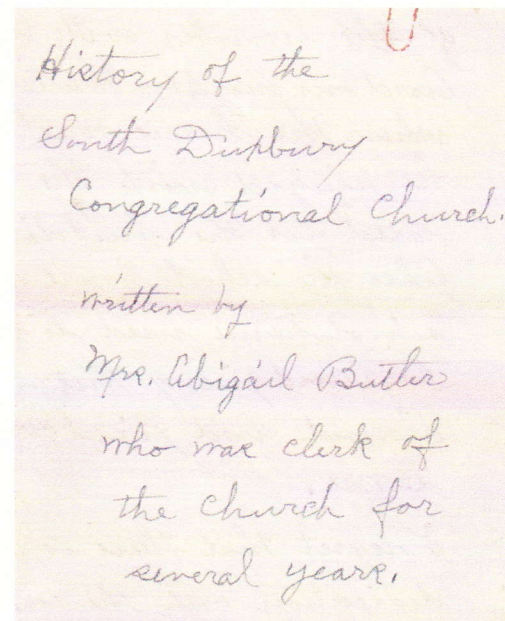 History of the
South Duxbury
Congregational Church.
written by
Mrs. Abigail Butler
who was clerk of
the church for
several years.